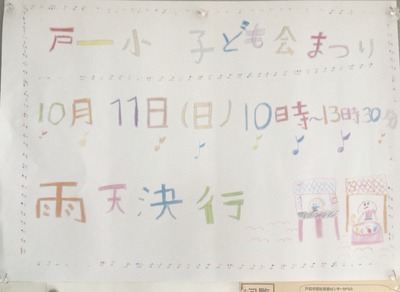 戸一小 子ども会まつり
10月 11日(日) 10時~13時30分
雨天決行